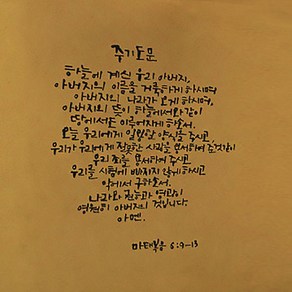 주기도문
하늘에 계신 우리 아버지,
아버지의 이름을 거룩하게 하시며
아버지의 나라가 오게 하시며,
아버지의 뜻이 하늘에서와 같이
땅에서도 이루어지게 하소서.
오늘 우리에게 일용할 양식을 주시고,
우리가 우리에게 잘못한 사람을 용서하여 준것같이
우리 죄를 용서하여 주시고
우리를 시험에 빠지지 않게 하시고
악에서 구하소서.
나라와 권능과 영광이
영원히 아버지의 것입니다.
아멘.
마태복음 6:9-13